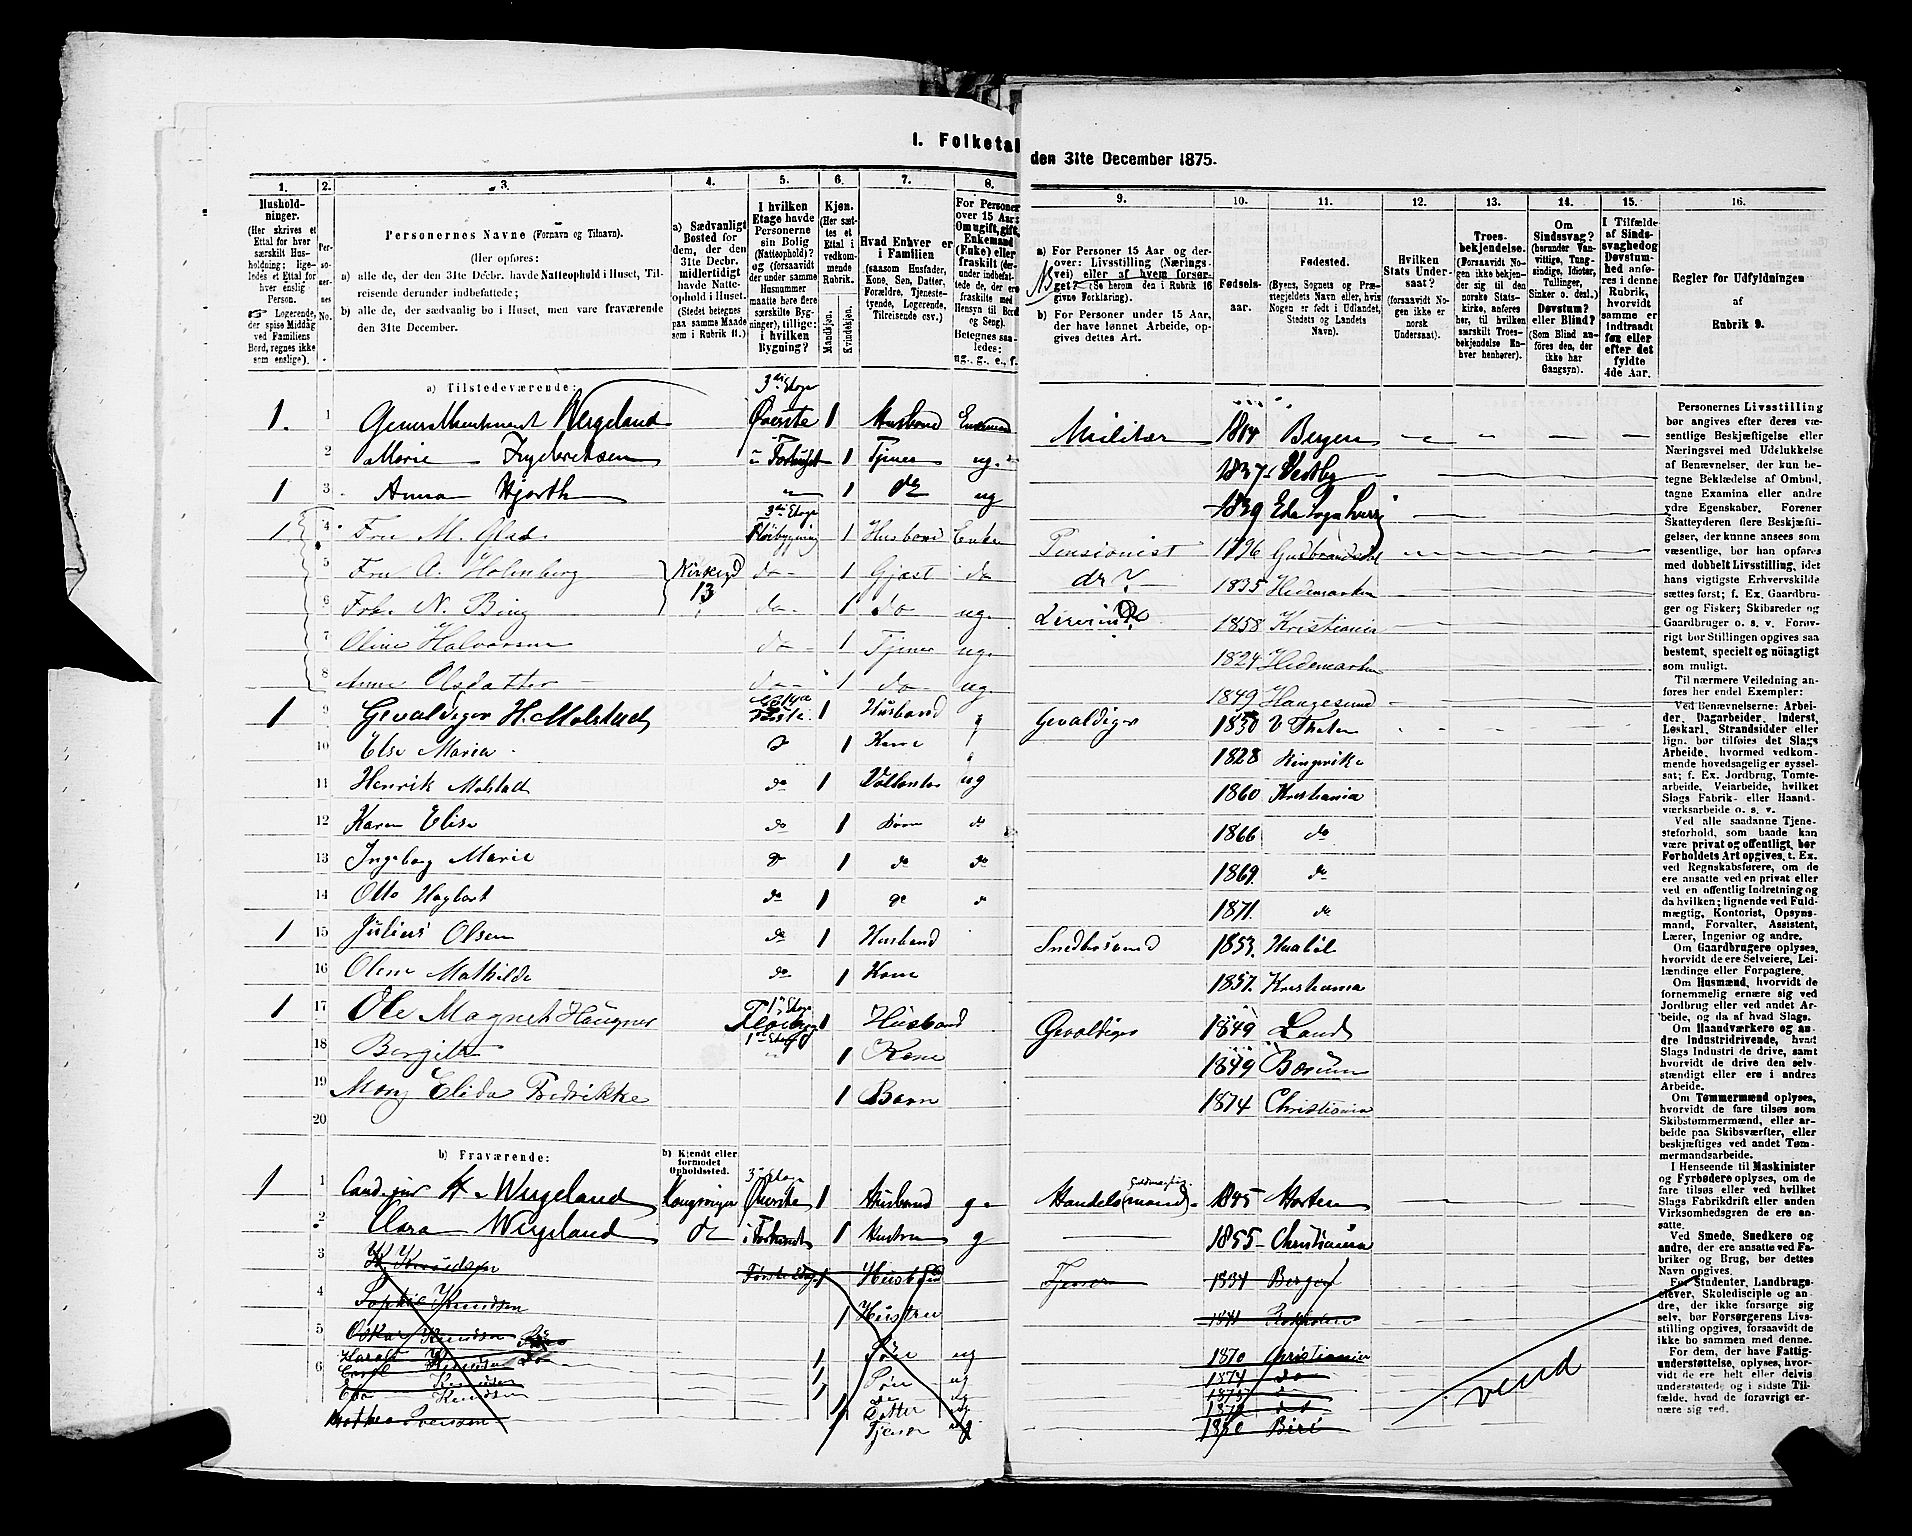 I. Folketal
den 31te December 1875.
1. 2. 3. 4. 5. 6. 7. 8. 9. 10. 11. 12. 13. 14. 15. 16.
Hushold-
ninger.
(Her skrives et
Ettal for hver
særskilt Hus-
holdning; lige-
ledes et Ettal
for hver
enslig
Person.
Logerende,
der spise Middag
ved Familiens
Bord, regnes ikke
som enslige).
Per-
so-
ner-
nes
No.
Personernes Navne (Fornavn og Tilnavn).
(Her opføres:
a) alle de, der den 31te Decbr. havde Natteophold i Huset, Til-
reisende derunder indbefattede;
b) alle de, der sædvanlig bo i Huset, men vare fraværende
den 31te December.
a) Sædvanligt
Bosted for
dem, der den
31te Decbr.
midlertidigt
havde Natte-
ophold i Huset.
(Stedet betegnes
paa samme Maade
som i Rubrik 11.)
I hvilken
Etage havde
Personerne
sin Bolig
(Natteophold)?
og (forsaavidt
der under samme
Husnummer
maatte høre flere
særskilte Byg-
ninger), tillige:
i hvilken
Bygning?
Kjøn.
(Her sæt-
tes et
Ettal i
vedkom-
mende
Rubrik.
Mandkjøn.
Kvindekjøn.
Hvad Enhver er
i Familien
(saasom Husfader,
Kone, Søn, Datter,
Forældre, Tjeneste-
tyende, Logerende,
Tilreisende osv.)
For Personer
over 15 Aar:
Om ugift, gift,
Enkemand
(Enke) eller
fraskilt (der-
under indbefat-
tede de, der ere
fraskilte med
Hensyn til Bord
og Seng).
Betegnes saa-
ledes:
ug., g., e., f.
a) For Personer 15 Aar og der-
over: Livsstilling (Nærings-
vei) eller af hvem forsør-
get? (Se herom den i Rubrik 16
givne Forklaring).
b) For Personer under 15 Aar,
der have lønnet Arbeide, op-
gives dettes Art.
Fødsels-
aar.
Fødested.
(Byens, Sognets og Præ-
stegjeldets Navn eller, hvis
Nogen er født i Udlandet,
Stedets og Landets
Navn).
Hvilken
Stats Under-
saat?
(forsaavidt No-
gen ikke er
norsk
Undersaat).
Troes-
bekjendelse.
(Forsaavidt No-
gen ikke bekjen-
der sig til den
norske Stats-
kirke, anføres
her, til hvilken
særskilt Troes-
bekjendelse En-
hver henhører).
Om
Sindssvag?
(herunder Van-
vittige, Tung-
sindige, Idioter,
Tullinger,
Sinker o. desl.)
Døvstum?
eller Blind?
(Som Blind an-
føres den, der
ikke har
Gangsyn).
I Tilfælde
af Sinds-
svaghed og
Døvstum-
hed anfø-
res i denne
Rubrik,
hvorvidt
samme er
indtraadt
før eller
efter det
fyldte
4de Aar.
Regler for Udfyldningen
af
Rubrik 9.
a) Tilstedeværende:
3die Etage
1. 1 Generallieutenant Wergeland Øverste 1 Husbond Enkemand Militær 1814 Bergen
2 Marie Ingebretsen i Forhuset 1 Tjener ug. 1837 Vestby
1 3 Anna Hjorth 1 do ug 1839 Eda Sogn
3die Etage
1 4 Fru M. Glad Fløibygning 1 Husbond Enke Pensionist 1796 Gudbrandsdal
5 Fru A. Holmberg do 1 Gjæst do do ? 1835 Hedemarken
13
6 Frk. N. Bing do 1 do ug. 1858 Kristiania
7 Oline Halvorsen do 1 Tjener ug. 1824 Hedemarken
8 Anne Olsdatter do 1 do ug. 1849 Haugesund
1 9 Gevaldiger H. Molstad 1 Husbond g Gevaldiger 1830 V. Thoten
10 Else Maria 1 Kone g 1828 Ringerike
11 Henrik Molstad do 1 ug 1860 Kristiania
12 Karen Elise do 1 Børn do 1866 do
13 Ingeborg Marie do 1 do do 1869. do
14 Otto Hagbart do 1 do 1871. do
1 15 Julius Olsen do 1 Husbond Snedkersvend 1853.
16 Oline Mathilde do 1 Kone 1857. Kristiania
1ste Etage
1 17 Ole Magnus Haugner 1 Husbond Gevaldiger 1849 Land
1ste Etage
18 Bergite 1 Kone 1849 Bærum
19 Mary Elida Fredrikke 1 Barn 1874 Christiania
20
b) Fraværende:
b) Kjendt eller
formodet
Opholdssted.
3die Etage
1 1 Cand. jur H. Wergeland Kongsvinger Øverste 1 Husbond g. Handels(mand) 1845 Horten
2 Clara Wergeland do i Forhuset 1 Hustru g 1855 Christiania
3 H Knudsen Første Etage 1 Husbond 1834 Bergen
4 Sophie Knudsen 1 Hustru
5 Oskar Knudsen 1 Søn ug 1870 Christiania
Harald Knudsen 1 Søn ug 1871 do
6 Knudsen do ug
Knudsen 1 Datter ug do
1 Tjener ug Biri
vend
Personernes Livsstilling
bør angives efter deres væ-
sentlige Beskjæftigelse eller
Næringsvei med Udelukkelse
af Benævnelser, der kun be-
tegne Beklædelse af Ombud,
tagne Examina eller andre
ydre Egenskaber. Forener
Skatteyderen flere Beskjæfti-
gelser, der kunne ansees som
væsentlige, bør han opføres
med dobbelt Livsstilling, idet
hans vigtigste Erhvervskilde
sættes først; f. Ex. Gaardbru-
ger og Fisker; Skibsreder og
Gaardbruger o. s. v. Forøv-
rigt bør Stillingen opgives saa
bestemt, specielt og nøiagtigt
som muligt.
Til nærmere Veiledning an-
føres her endel Exempler:
Ved Benævnelserne: Arbei-
der, Dagarbeider, Inderst,
Løskarl, Strandsidder eller
lign. bør tilføies det Slags
Arbeide, hvormed vedkom-
mende hovedsagelig er syssel-
sat; f. Ex. Jordbrug, Tomte-
arbeide, Veiarbeide, hvilket
Slags Fabrik- eller Haand-
værksarbeide o. s. v.
Ved alle saadanne Tjene-
steforhold, som baade kan
være privat og offentligt, bør
Forholdets Art opgives, t. Ex.
ved Regnskabsførere, om de
ere ansatte ved en privat eller
ved en offentlig Indretning og
da hvilken; lignende ved Fuld-
mægtig, Kontorist, Opsyns-
mand, Forvalter, Assistent,
Lærer, Ingeniør og andre.
Om Gaardbrugere oplyses,
hvorvidt de ere Selveiere, Lei-
lændinge eller Forpagtere.
Om Husmænd, hvorvidt de
fornemmelig ernære sig ved
Jordbrug eller ved andet Ar-
beide, og da af hvad Slags.
Om Haandværkere og an-
dre Industridrivende, hvad
Slags Industri de drive, samt
hvorvidt de drive den selv-
stændigt eller ere i andres
Arbeide.
Om Tømmermænd oplyses,
hvorvidt de fare tilsøs som
Skibstømmermænd, eller ar-
beide paa Skibsværfter, eller
beskjæftiges ved andet Tøm-
mermandsarbeide.
I Henseende til Maskinister
og Fyrbødere oplyses, om de
fare tilsøs eller ved hvilket
Slags Fabrikdrift eller anden
Virksomhedsgren de ere an-
satte.
Ved Smede, Snedkere og
andre, der ere ansatte ved Fa-
briker og Brug, bør dettes
Navn opgives.
For Studenter, Landbrugs-
elever, Skoledisciple og an-
dre, der ikke forsørge sig
selv, bør Forsørgerens Livs-
stilling opgives, forsaavidt de
ikke bo sammen med denne.
For dem, der have Fattig-
understøttelse, oplyses, hvor-
vidt de ere helt eller delvis
understøttede og i sidste Til-
fælde, hvad de forøvrigt er-
nære sig ved.